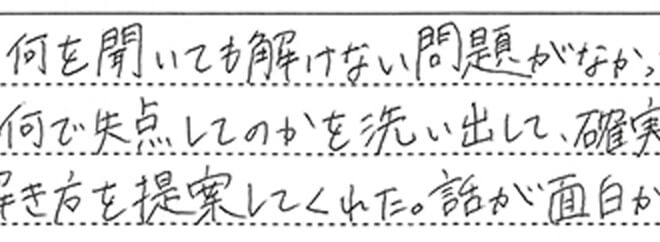 何を聞いても解けない問題がなかっ
何で失点してのかを洗い出して、確実
解き方を提案してくれた。話が面白か